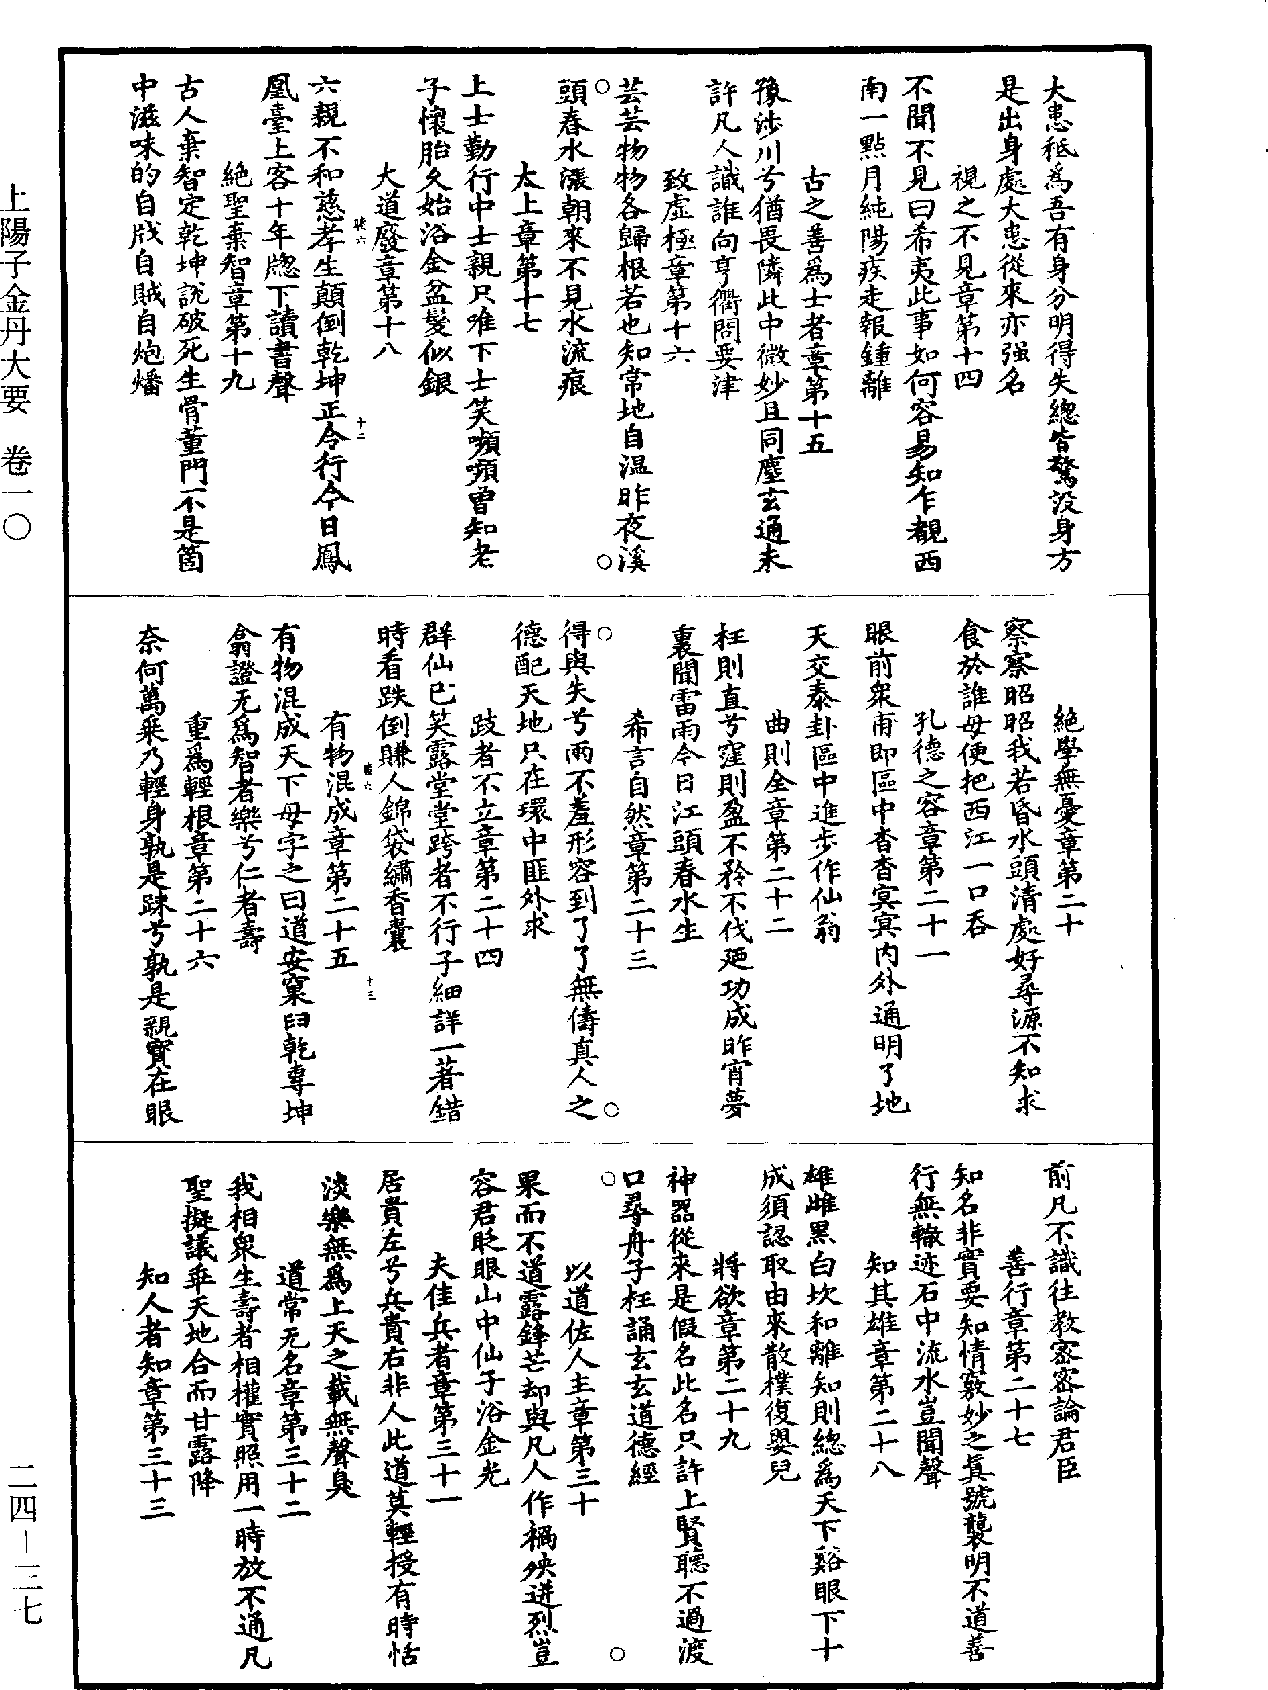 大患秪為吾有身分明得失總皆驚設身方
是出身處大患從來亦强名
視之不見章第十四
不聞不見曰希夷此事如何容易知乍覩西
南一點月純陽疾走報鍾離
古之善爲士者章第十五
豫涉川兮猶畏隣此中微妙且同塵玄通未
許凡人識誰向亨衢問要津
致虛極章第十六
芸芸物物各歸根若也知常地自温昨夜溪
頭春水漲朝來不見水流痕
太上章第十七
上士勤行中士親只唯下士笑嚬嚬曾知老
子懷胎久始浴金盆髮似銀
大道廢章第十八
六親不和慈孝生顛倒乾坤正令行今日鳳
凰臺上客十年牕下讀書聲
絶聖棄智章第十九
古人棄智定乾坤說破死生骨董門不是箇
中滋味的自戕自賊自炮燔
絶學無憂章第二十
察察昭昭我若昏水頭清處好尋源不知求
食於誰母便把西江一口吞
孔德之容章第二十一
眼前衆甫即區中杳杳冥冥內外通明了地
天交泰卦區中進步作仙翁
曲則全章第二十二
枉則直兮窪則盈不矜不伐廼功成昨宵夢
裏聞雷雨今日江頭春水生
希言自然章第二十三
得與失兮兩不羞形容到了了無儔真人之
德配天地只在環中匪外求
跂者不立章第二十四
群仙巳笑露堂堂跨者不行子細詳一著錯
時看跌倒賺人錦袋繡香囊
有物混成章第二十五
有物混成天下母字之曰道安窠臼乾專坤
翕證无爲智者樂兮仁者壽
重爲輕根章第二十六
奈何萬乘乃輕身孰是踈兮孰是親寶在眼
前凡不識往教密密論君臣
善行章第二十七
知名非實要知情竅妙之真號襲明不道善
行無轍迹石中流水豈聞聲
知其雄章第二十八
雄雌黑白坎和離知則總爲天下谿眼下十
成須認取由來散樸復嬰兒
將欲章第二十九
神器從來是假名此名只許上賢聽不過渡
口尋舟子枉誦玄玄道德經
以道佐人主章第三十
果而不道露鋒芒却與凡人作禍殃迸烈豈
容君眨眼山中仙子浴金光
夫佳兵者章第三十一
居貴左兮兵貴右非人此道莫輕授有時恬
淡樂無爲上天之載無聲臭
道常无名章第三十二
我相衆生壽者相權實照用一時放不通凡
聖擬議乖天地合而甘露降
知人者知章第三十三
上陽子金丹大要　卷一〇
二四－三七